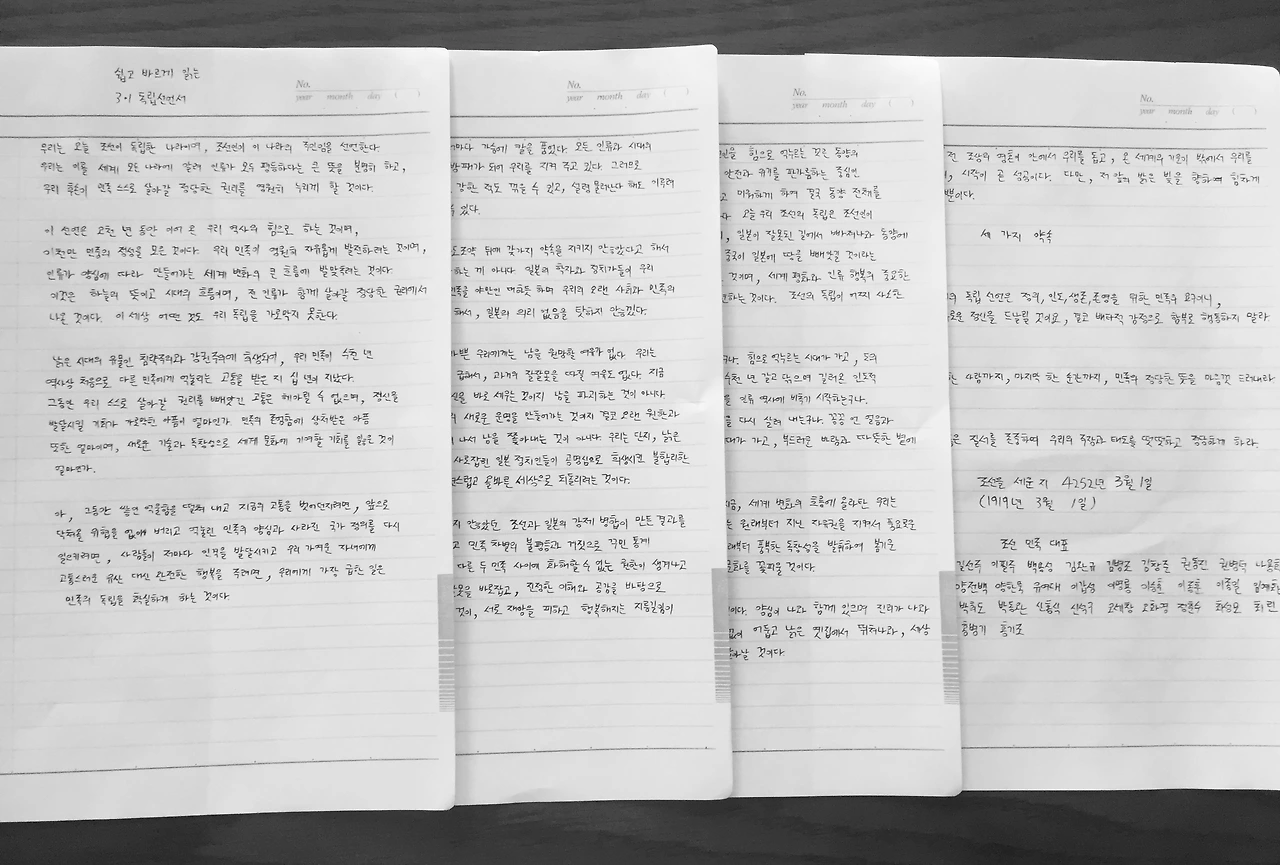 쉽고 바르게 읽는
3·1 독립선언서
No.
year month day ( )
우리는 오늘 조선이 독립한 나라이며, 조선인이 이 나라의 주인임을 선언한다.
우리는 이를 세계 모든 나라에 알려 인류가 모두 평등하다는 큰 뜻을 분명히 하고,
우리 후손이 민족 스스로 살아갈 정당한 권리를 영원히 누리게 할 것이다.
이 선언은 오천 년 동안 이어 온 우리 역사의 힘으로 하는 것이며,
이천만 민중의 정성을 모은 것이다. 우리 민족이 영원히 자유롭게 발전하려는 것이며,
인류가 양심에 따라 만들어가는 세계 변화의 큰 흐름에 발맞추려는 것이다.
이것은 하늘의 뜻이고 시대의 흐름이며, 전 인류가 함께 살아갈 정당한 권리에서
나온 것이다. 이 세상 어떤 것도 우리 독립을 가로막지 못한다.
낡은 시대의 유물인 침략주의와 강권주의에 희생되어, 우리 민족이 수천 년
역사상 처음으로 다른 민족에게 억눌리는 고통을 받은 지 십 년이 지났다.
그동안 우리 스스로 살아갈 권리를 빼앗긴 고통은 헤아릴 수 없으며, 정신을
발달시킬 기회가 가로막힌 아픔이 얼마인가. 민족의 존엄함에 상처받은 아픔
또한 얼마이며, 새로운 기술과 독창성으로 세계 문화에 기여할 기회를 잃은 것이
얼마인가.
아, 그동안 쌓인 억울함을 떨쳐 내고 지금의 고통을 벗어던지려면, 앞으로
닥쳐올 위협을 없애 버리고 억눌린 민족의 양심과 사라진 국가 정의를 다시
일으키려면, 사람들이 저마다 인격을 발달시키고 우리 가여운 자녀에게
고통스러운 유산 대신 완전한 행복을 주려면, 우리에게 가장 급한 일은
민족의 독립을 확실하게 하는 것이다.
No.
year month day ( )
마다 가슴에 칼을 품었다. 모든 인류와 시대의
되어 우리를 지켜 주고 있다. 그러므로
강한 적도 꺾을 수 있고, 설령 물러난다 해도 이루려
있다.
조약 뒤에 갖가지 약속을 지키지 않았다고 해서
하는 게 아니다. 일본의 학자와 정치가들이 우리
야만인 대하듯 하며 우리의 오랜 사회와 민족의
해서, 일본의 의리 없음을 탓하지 않겠다.
바쁜 우리에게는 남을 원망할 여유가 없다. 우리는
급해서, 과거의 잘잘못을 따질 여유도 없다. 지금
바로 세우는 것이지 남을 파괴하는 것이 아니다.
새로운 운명을 만들어가는 것이지 결코 오랜 원한과
나서 남을 쫓아내는 것이 아니다. 우리는 단지, 낡은
사로잡힌 일본 정치인들이 공명심으로 희생시킨 불합리한
올바른 세상으로 되돌리려는 것이다.
않았던 조선과 일본의 강제 병합이 만든 결과를
민족 차별의 불평등과 거짓으로 꾸민 통계
다른 두 민족 사이에 화해할 수 없는 원한이 생겨나고
바로잡고, 진정한 이해와 공감을 바탕으로
것이, 서로 재앙을 피하고 행복해지는 지름길이
No.
year month day ( )
힘으로 억누르는 것은 동양의
안전과 위기를 판가름하는 중심인
미워하게 하여 결국 동양 전체를
오늘 우리 조선의 독립은 조선인이
일본이 잘못된 길에서 빠져나와 동양에
중국이 일본에 땅을 빼앗길 것이라는
것이며, 세계 평화와 인류 행복의 중요한
하는 것이다. 조선의 독립이 어찌 사소한
힘으로 억누르는 시대가 가고, 도의
수천 년 갈고 닦으며 길러온 인도적
인류 역사에 비추기 시작하는구나.
다시 살려 내는구나. 꽁꽁 언 얼음과
가고, 부드러운 바람과 따뜻한 볕에
세계 변화의 흐름에 올라탄 우리는
원래부터 지닌 자유권을 지켜서 풍요로운
풍부한 독창성을 발휘하여 봄기운
꽃피울 것이다.
양심이 나와 함께 있으며 진리가 나와
없이 어둡고 낡은 옛집에서 뛰쳐나와, 세상
것이다.
No.
year month day ( )
전 조상의 영혼이 안에서 우리를 돕고, 온 세계의 기운이 밖에서 우리를
시작이 곧 성공이다. 다만, 저 앞의 밝은 빛을 향하여 힘차게
뿐이다.
세 가지 약속
독립 선언은 정의, 인도, 생존, 존영을 위한 민족의 요구이니,
정신을 드날릴 것이요, 결코 배타적 감정으로 함부로 행동하지 말라
한 사람까지, 마지막 한 순간까지, 민족의 정당한 뜻을 마음껏 드러내라
질서를 존중하여 우리의 주장과 태도를 떳떳하고 정당하게 하라.
조선을 세운 지 4252년 3월 1일
(1919년 3월 1일)
조선 민족 대표
길선주 이필주 백용성 김완규 김병조 김창준 권동진 권병덕 나용환
양전백 양한묵 유여대 이갑성 이명룡 이승훈 이종훈 이종일
박희도 박동완 신홍식 신석구 오세창 오화영 정춘수 최성모 최린
홍병기 홍기조